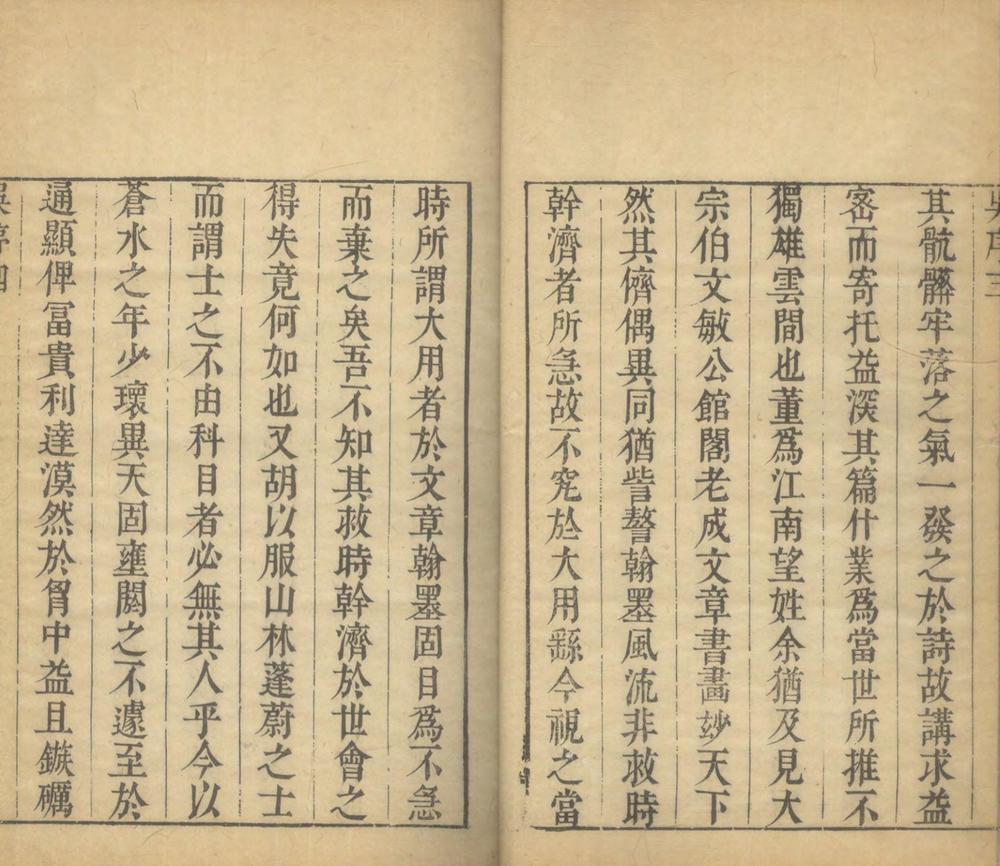 吳序三
其骯髒牢落之氣一發之於詩故講求益
密而寄托益深其篇什業爲當世所推不
獨雄雲間也董爲江南望姓余猶及見大
宗伯文敏公館閣老成文章書畫妙天下
然其儕偶異同猶訾謷翰墨風流非救時
幹濟者所急故不究於大用繇今視之當
時所謂大用者於文章翰墨固目爲不急
而棄之矣吾不知其救時幹濟於世會之
得失竟何如也又胡以服山林蓬蔚之士
而謂士之不由科目者必無其人乎今以
蒼水之年少瓌異天固壅閼之不遽至於
通顯俾冨貴利達漠然於胷中益且鏃礪
吳序四